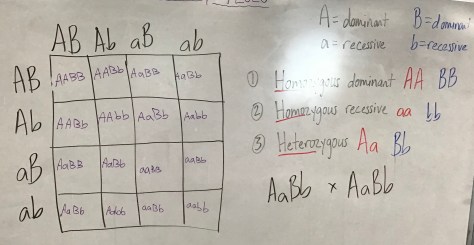 A= dominant B= dominant
a= recessive b= recessive
AB Ab aB ab
AB AABB AABb AaBB AaBb
Ab AABb AAbb AaBb Aabb
aB AaBB AaBb aaBB aaBb
ab AaBb Aabb aaBb aabb
① Homozygous dominant AA BB
② Homozygous recessive aa bb
③ Heterozygous Aa Bb
AaBb × AaBb